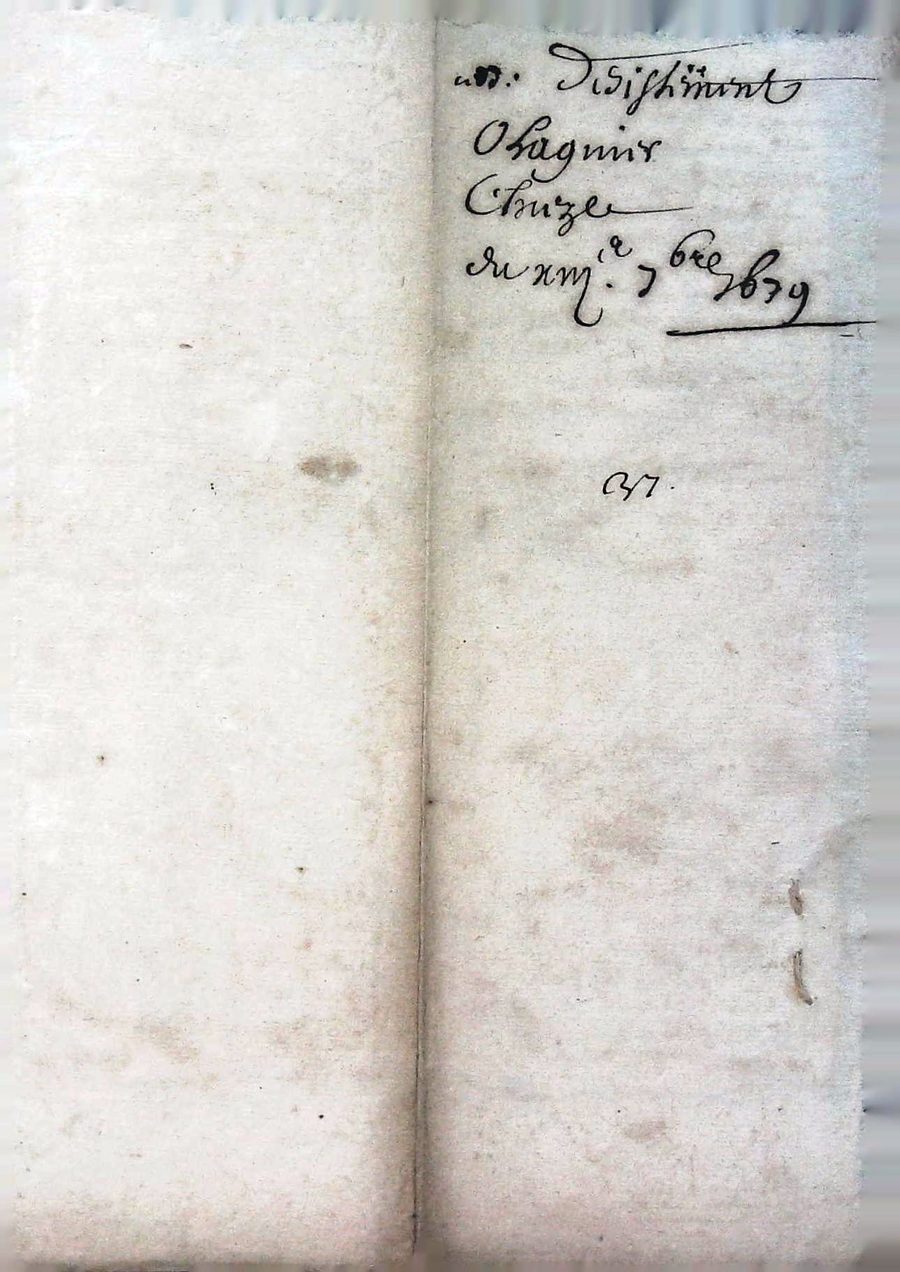 Desistiment
Ohagnier
Chuzel
du xiiij.e 7bre 1679